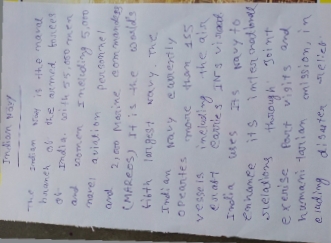 Indian Navy
The Indian Navy is the naval
branch of the armed forces
of India. with 55,000 men
and women Including 5,000
naval aviation personnel
and 2,000 Marine commandos
(MARCOS) It is the world's
fifth largest navy. The
Indian navy currently
operates more than 155
vessels including the air
craft carrier INS
India uses Its Navy to
enhance its international
relations through joint
exercise Port visits and
humanitarian mission, in
cluding disaster relief.